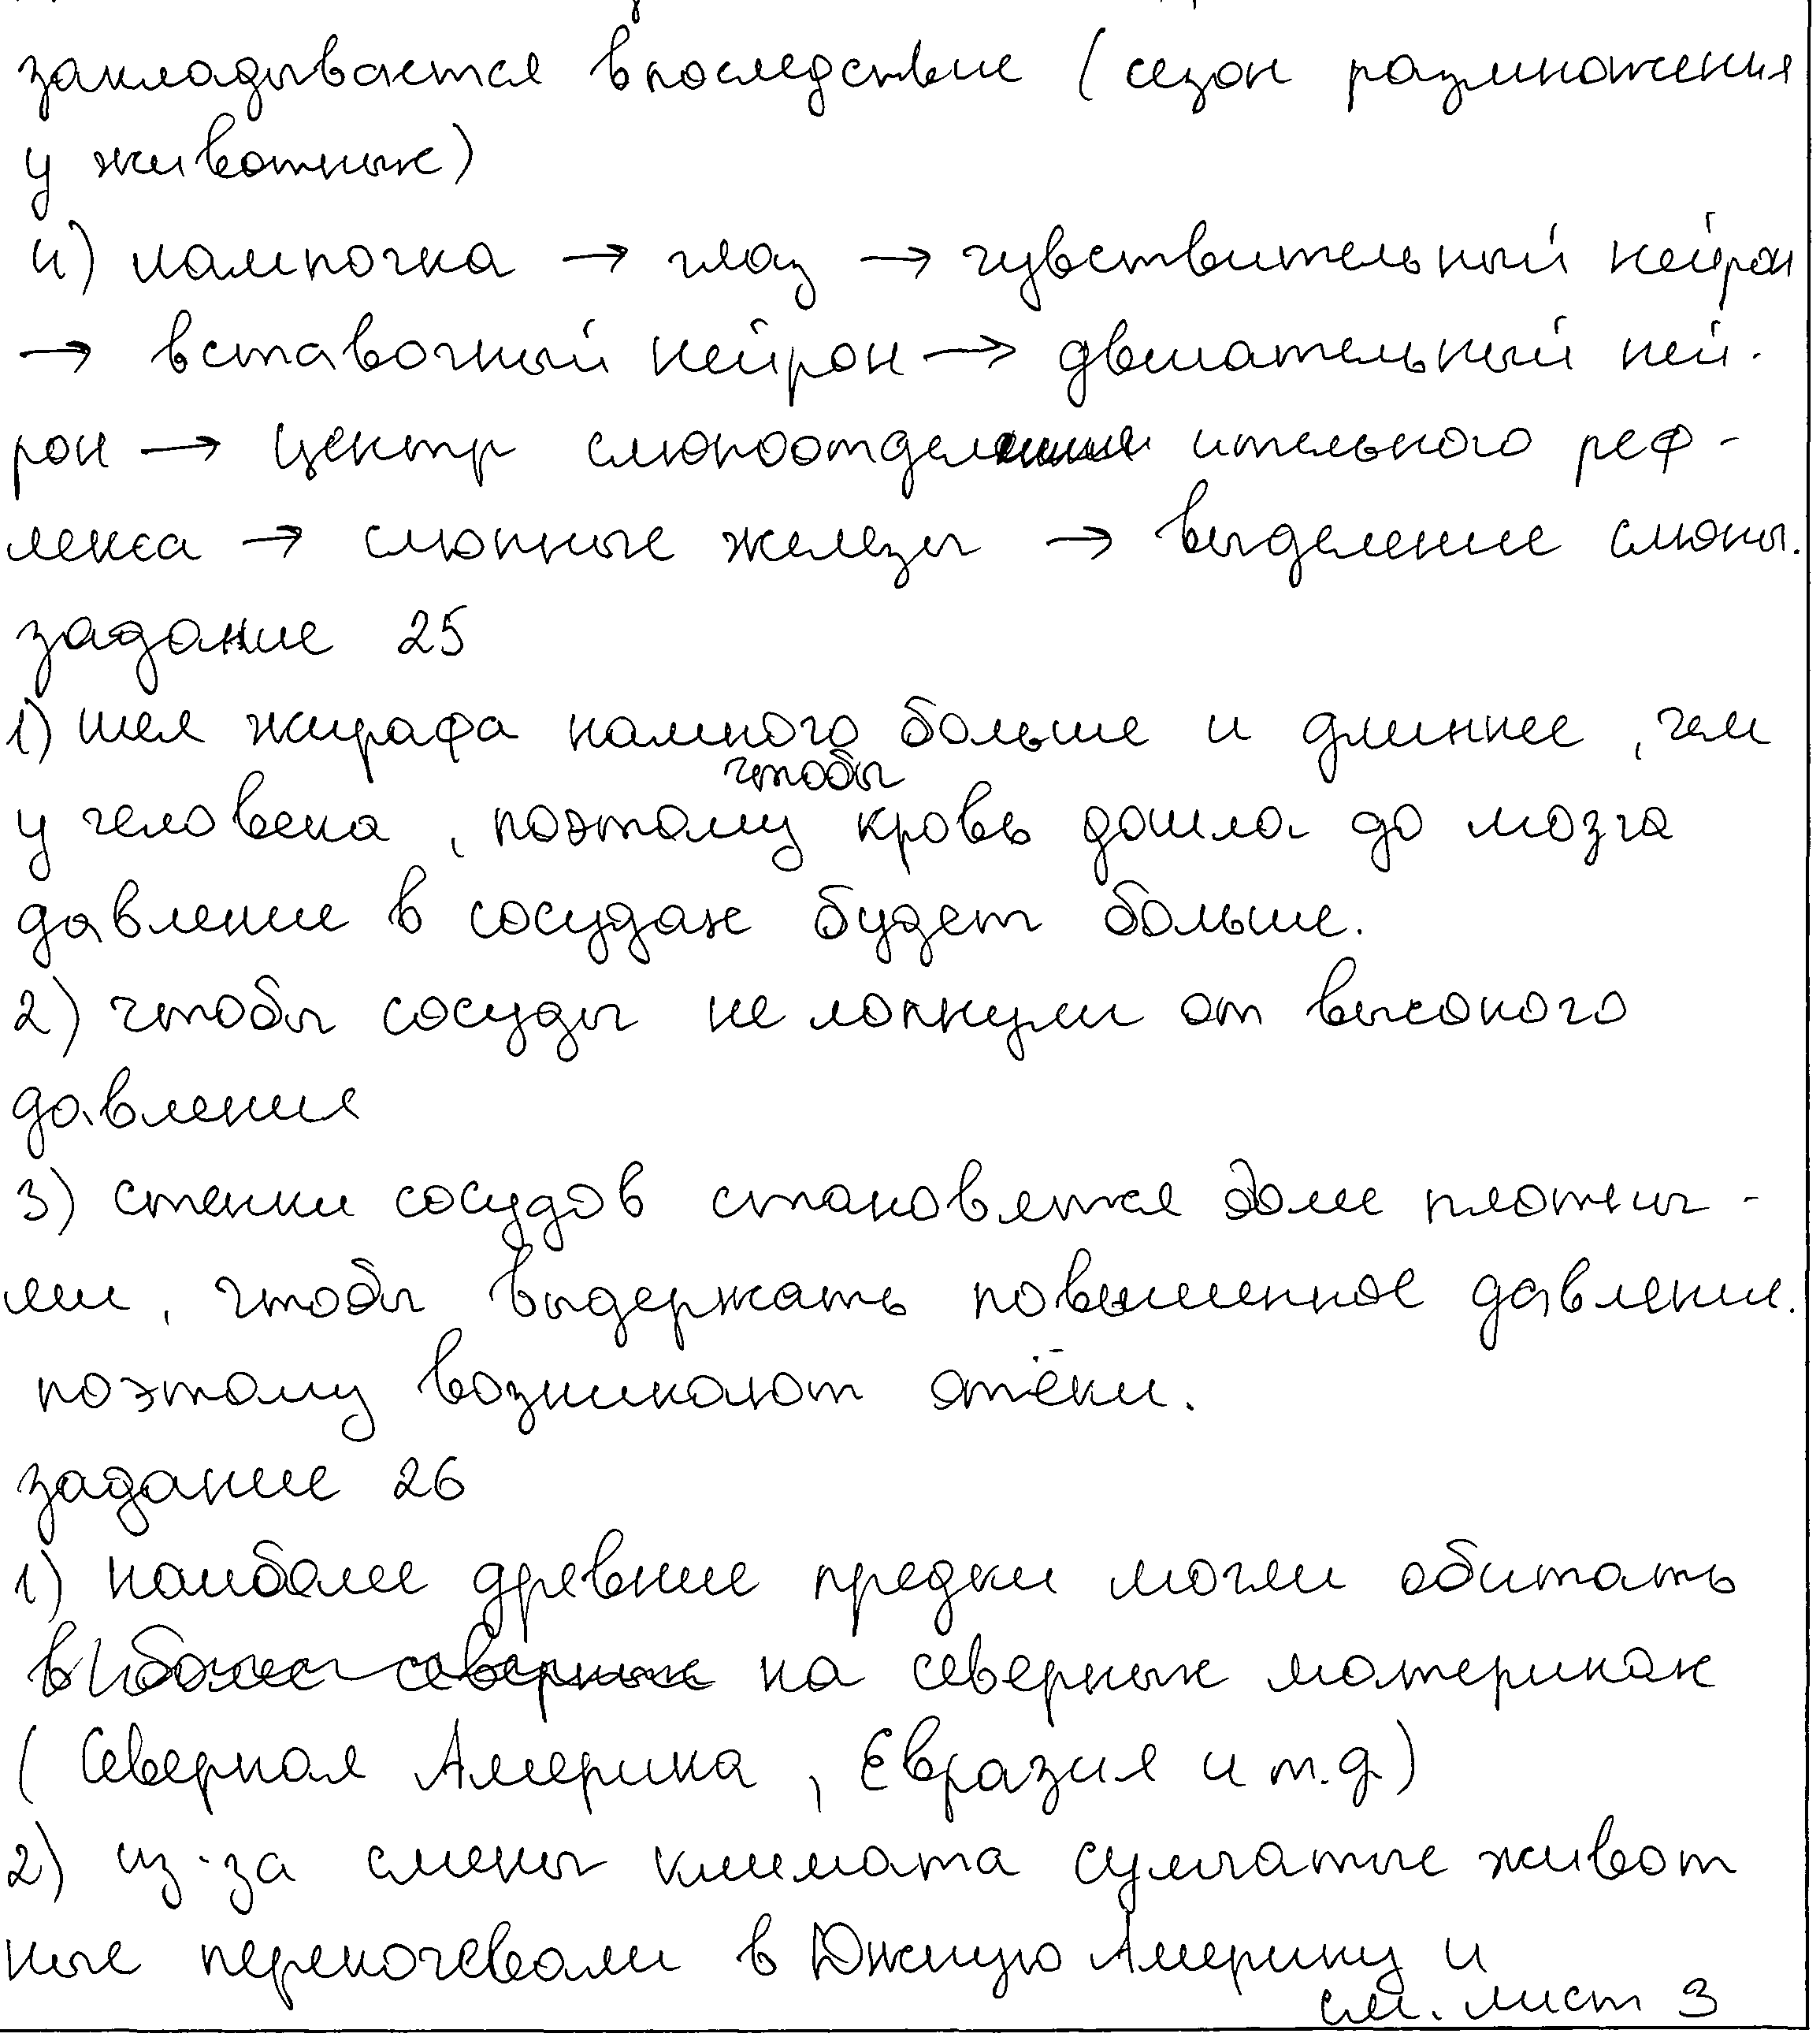 закладывается впоследствие (сезон размножения
у животных)
4) лампочка → глаз → чувствительный нейрон
→ вставочный нейрон → двигательный ней-
рон → центр слюноотделительного реф-
лекса → слюнные железы → выделение слюны.
задание 25
1) шея жирафа намного больше и длиннее, чем
у человека, поэтому чтобы кровь дошла до мозга
давление в сосудах будет больше.
2) чтобы сосуды не лопнули от высокого
давления
3) стенки сосудов становятся более плотны-
ми, чтобы выдержать повышенное давление.
поэтому возникают отёки.
задание 26
1) наиболее древние предки могли обитать
в более северных на северных материках
(Северная Америка, Евразия и т.д)
2) из-за смены климата сумчатые живот
ные перекочевали в Южную Америку и
см. лист 3